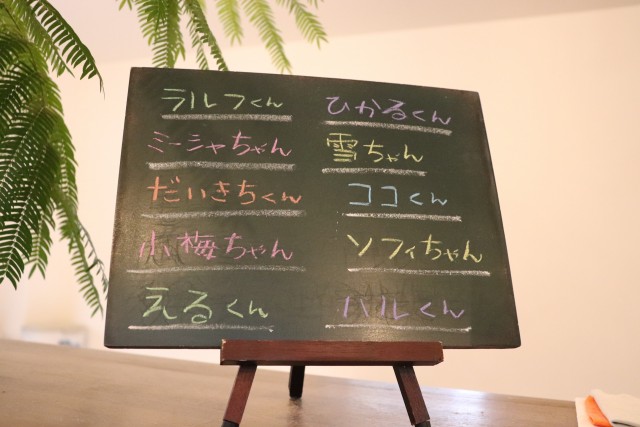 ラルフくん
ミーシャちゃん
だいきちくん
小梅ちゃん
えるくん
ひかるくん
雪ちゃん
ココくん
ソフィちゃん
ハルくん